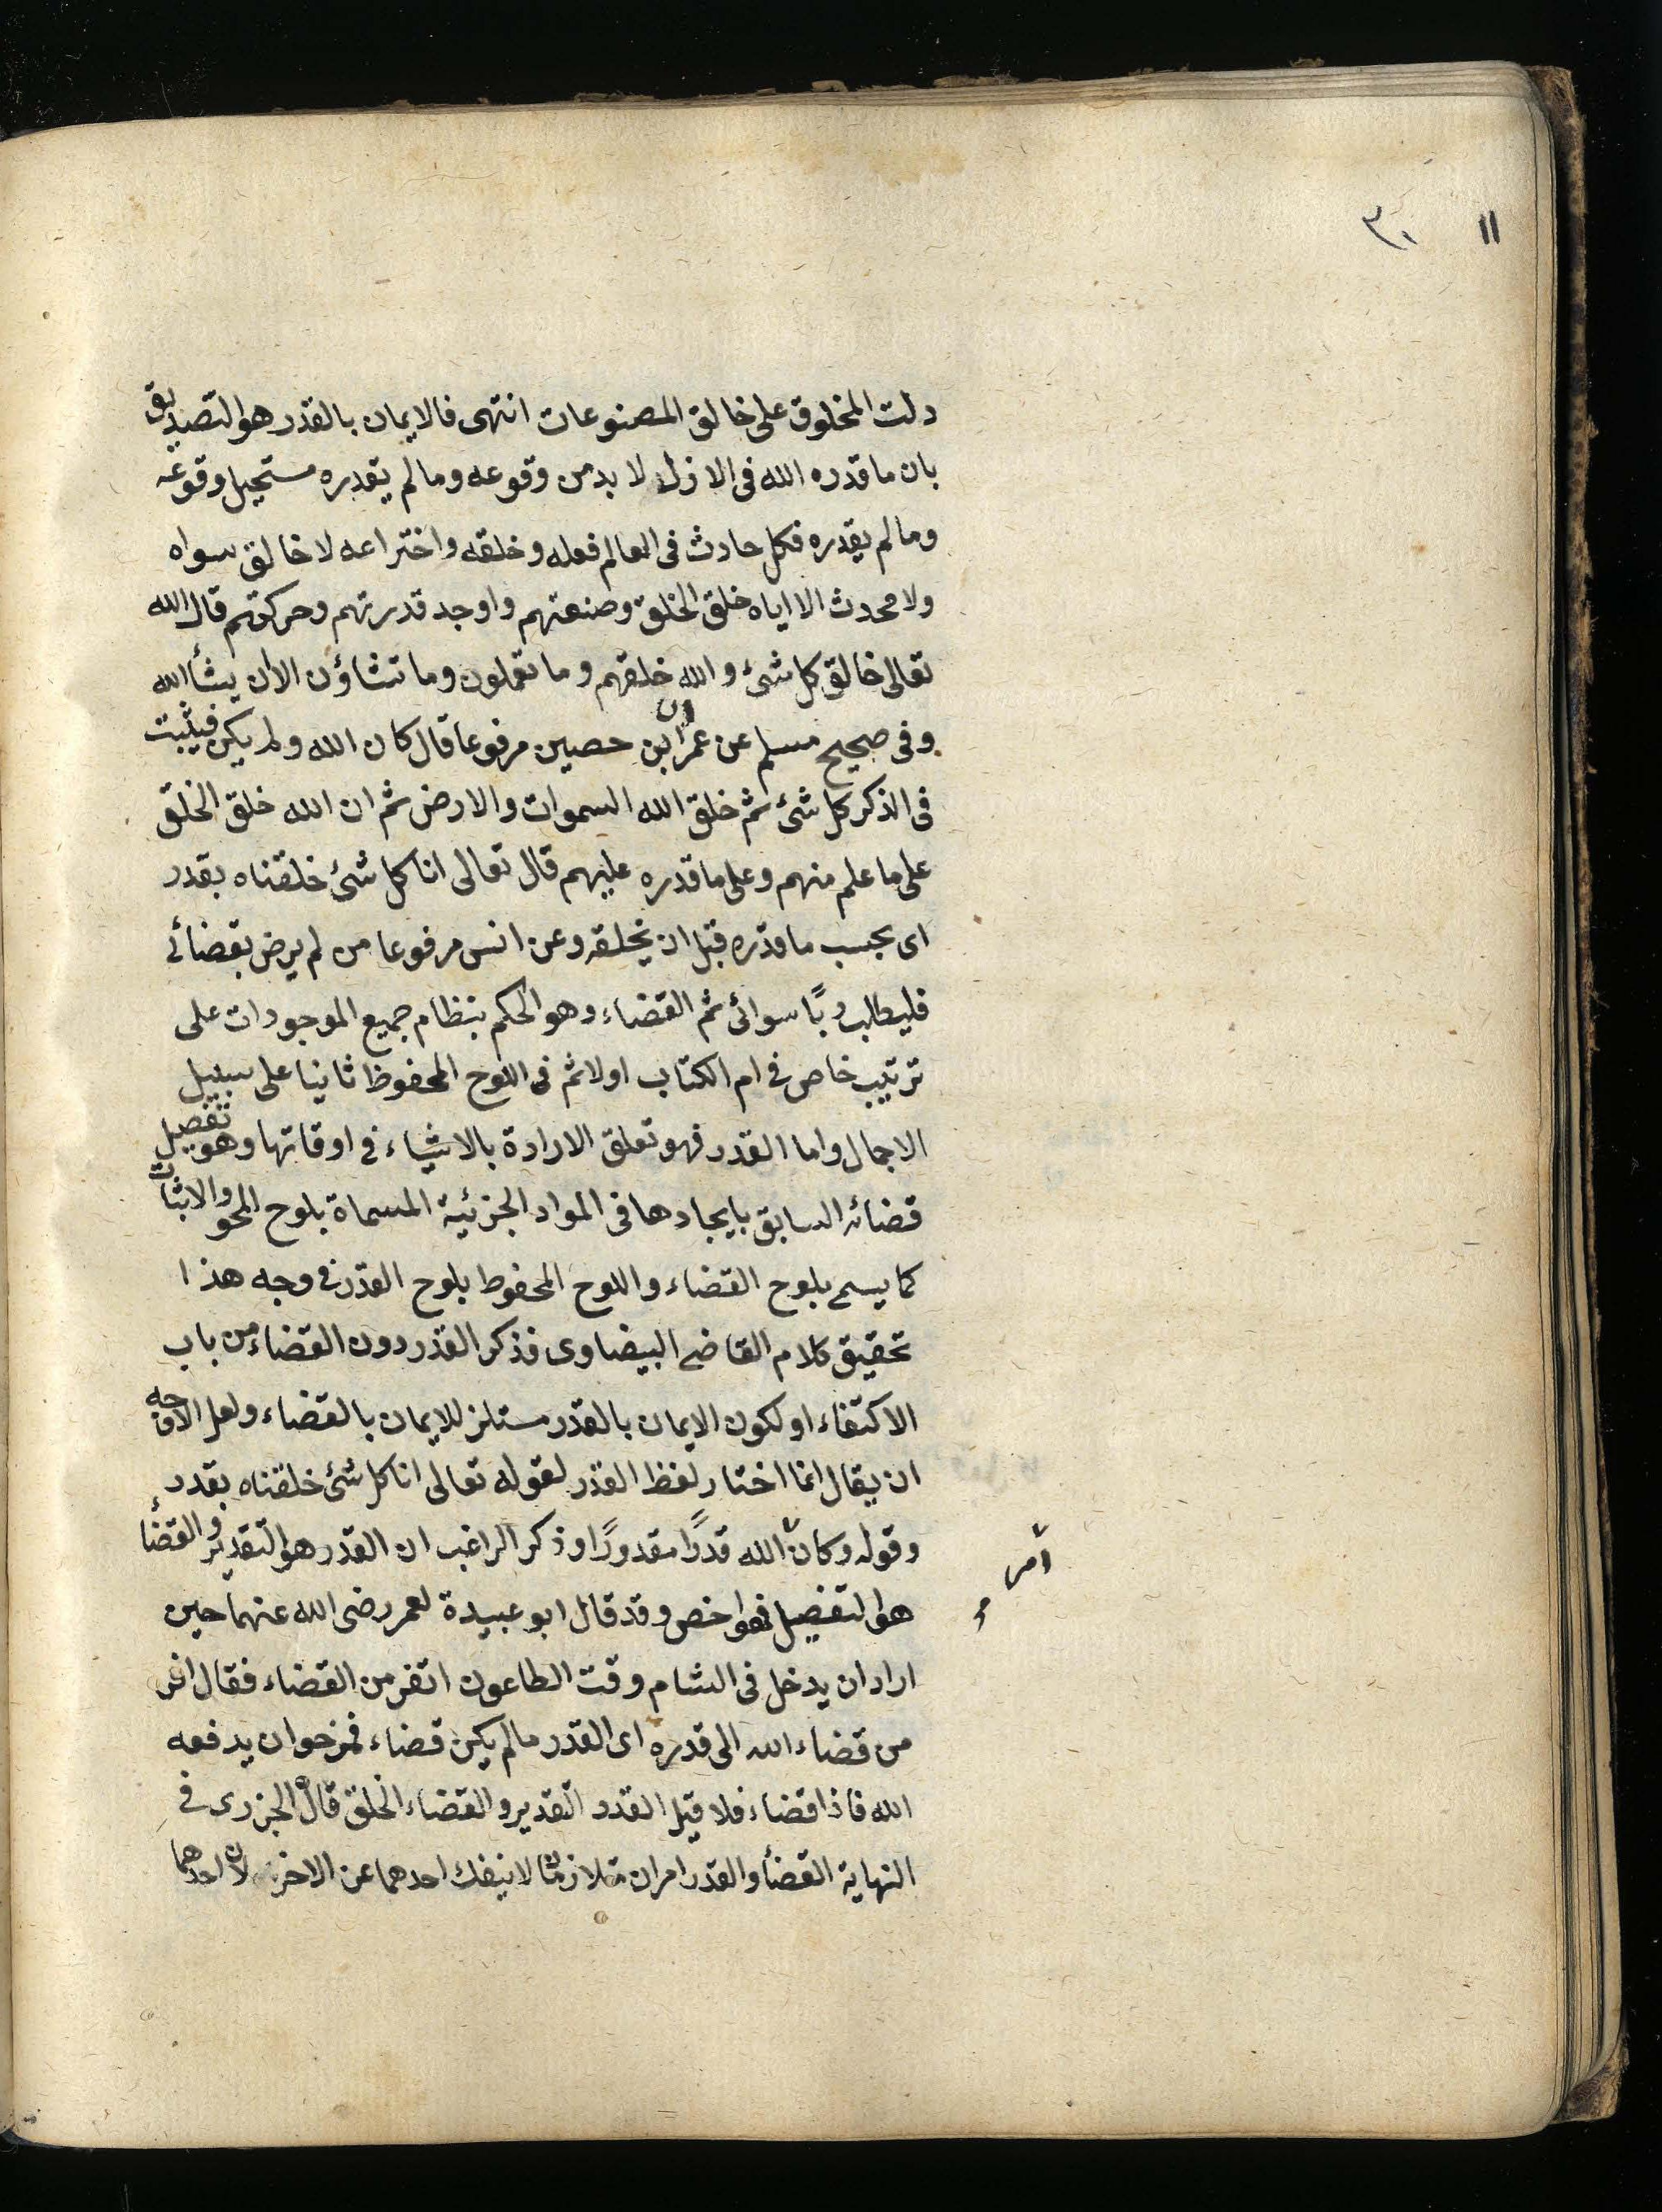 ١١ ٣٠
دلت المخلوق على خالق المصنوعات انتهى فالايمان بالقدر هو التصديق
بان ما قدره الله فى الازل لا بد من وقوعه وما لم يقدره مستحيل وقوعه
وما لم يقدره فكل حادث فى العالم فعله وخلقه واختراعه لا خالق سواه
ولا محدث الا اياه خلق الخلق وصنعتهم واوجد قدرتهم وحركتهم قال الله
تعالى خالق كل شئ والله خلقهم وما تعملون وما تشاؤن الا ان يشأ الله
وفى صحيح مسلم عن عمران بن حصين مرفوعا قال كان الله ولم يكن فيثبت
فى الذكر كل شئ ثم خلق الله السموات والارض ثم ان الله خلق الخلق
على ما علم منهم وعلى ما قدره عليهم قال تعالى انا كل شئ خلقناه بقدر
اى بحسب ما قدره قبل ان يخلقه وعن انس مرفوعا من لم يرض بقضائى
فليطلب ربًا سوائى ثم القضاء وهو الحكم بنظام جميع الموجودات على
ترتيب خاص فى ام الكتاب اولا ثم فى اللوح المحفوظ ثانيا على سبيل
الاجمال واما القدر فهو تعلق الارادة بالاشياء فى اوقاتها وهو تفصيل
قضائه السابق بايجادها فى المواد الجزئية المسماة بلوح المحو والاثبات
كما يسمى بلوح القضاء واللوح المحفوظ بلوح القدر فى وجه هذا
تحقيق كلام القاضى البيضاوى فذكر القدر دون القضاء من باب
الاكتفاء او لكون الايمان بالقدر مستلزم للايمان بالقضاء ولعل الاوجه
ان يقال انما اختار لفظ القدر لقوله تعالى انا كل شئ خلقناه بقدر
وقوله وكان الله قدرًا مقدورًا وذكر الراغب ان القدر هو التقدير والقضأ
امر
هو التفصيل فهو اخص وقد قال ابو عبيدة لعمر رضى الله عنهما حين
اراد ان يدخل فى الشام وقت الطاعون اتفر من القضاء فقال افر
من قضاء الله الى قدره اى القدر ما لم يكن قضاء فمرجو ان يدفعه
الله فاذا قضاء فلا قيل القدر التقدير والقضاء الخلق قال الجزرى فى
النهاية القضأ والقدر امران متلازمان لا ينفك احدهما عن الاخر لان احدهما